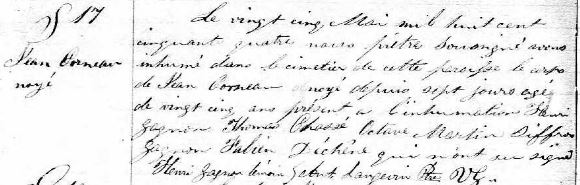 S 17
Jean Corneau
noyé
Le vingt cinq Mai mil huit cent
cinquant quatre nous prêtre Sousigné avons
inhumé dans le cimetier de cette paroisse le corp
de Jean Corneau noyé depuis sept jours agé
de vingt cinq ans présent a l'inhumation Henri
Gagnon Thomas Chassé Octave Martin
Gagnon Julien Dechêne qui n'ont su signé
Henri Gagnon témoin Langevin Ptre V.G.